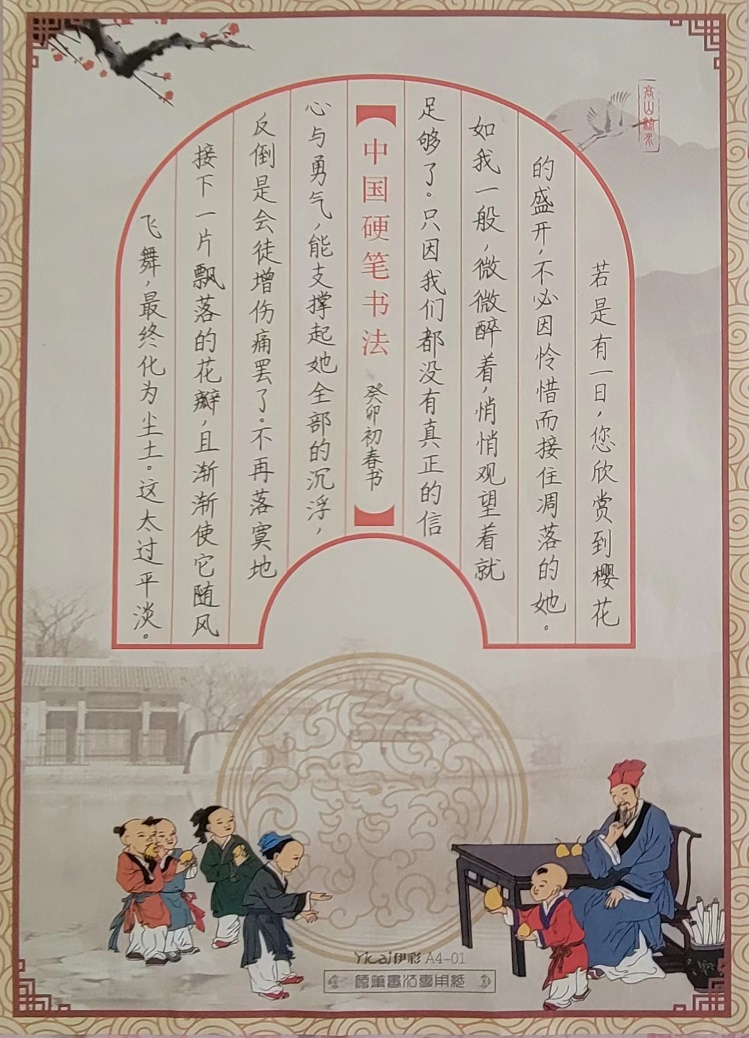 若是有一日，您欣赏到樱花
的盛开，不必因怜惜而接住凋落的她。
如我一般，微微醉着，悄悄观望着就
足够了。只因我们都没有真正的信
中国硬笔书法
癸卯初春书
心与勇气，能支撑起她全部的沉浮，
反倒是会徒增伤痛罢了。不再落寞地
接下一片飘落的花瓣，且渐渐使它随风
飞舞，最终化为尘土。这太过平淡。
Yicai伊彩 A4-01
硬笔书法专用纸